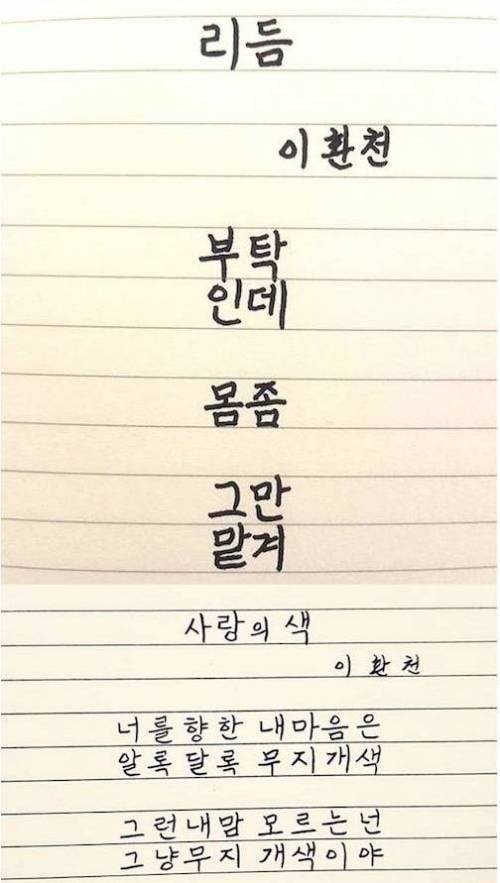 리듬
이환천
부탁
인데
몸좀
그만
맡겨
사랑의 색
이환천
너를향한 내마음은
알록달록 무지개색
그런내맘 모르는넌
그냥무지 개색이야